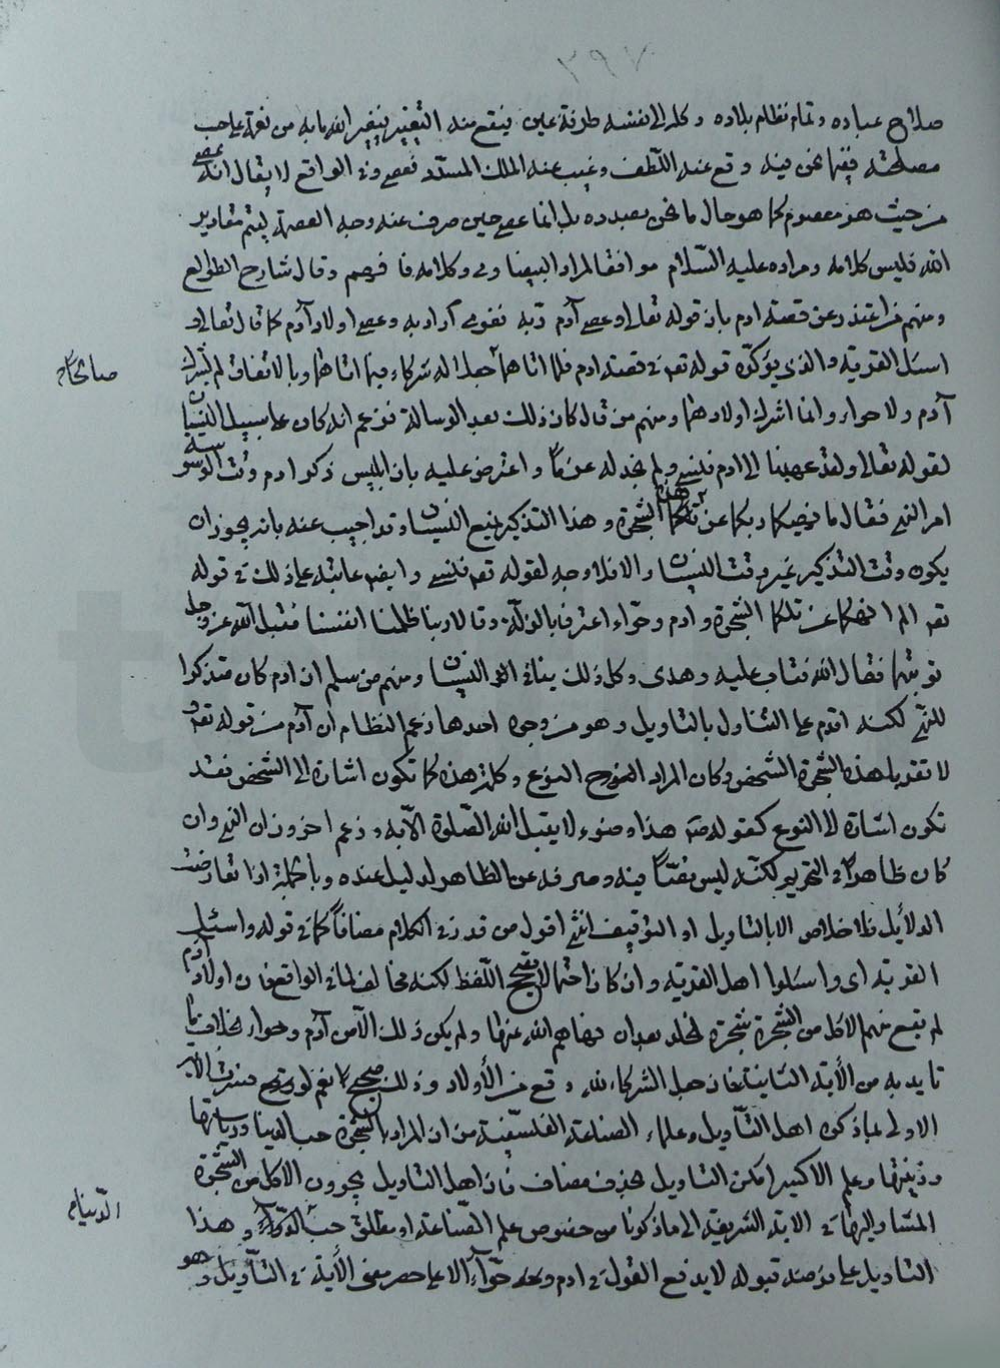 ٢٩٧
صلاح عباده وتمام نظام بلاده وكله الى نفسه طرفة عين فيقع منه التغيير فيغير الله ما به من نعمة على حب
مصلحته فيما نحن فيه وقع عنه اللطف وغيب عنه الملك المسدد فعصى وفى الواقع لا يقال انه عصى
من حيث هو معصوم كما هو حال ما نحن بصدده بل انما عصى حين صرف عنه وجه العصمة ليتم مقادير
الله فليس كلامه ومراده عليه السلام موافقا لمراد البيضاوى وكلامه فافهم وقال شارح الطوالع
ومنهم من اعتذر عن قصة ادم بان قوله تعالى وعصى آدم ربه فغوى اراد به وعصى اولاد آدم كما قال تعالى و
اسئل القرية والذى يؤكده قوله تعـ فى قصة ادم فلما اتاهما صالحا جعلا له شركاء فيما اتاهما وبالاتفاق لم يشرك
آدم ولا حواء وانما اشرك اولادهما ومنهم من قال كان ذلك بعد الرسالة فزعم انه كان على سبيل النسيان
لقوله تعالى ولقد عهدنا الى ادم فنسى ولم نجد له عزما واعترض عليه بان ابليس ذكر ادم وقت الوسوسة
امر النهى فقال ما نهيكما ربكما عن هذه الشجرة وهذا التذكير يمنع النسيان وقد اجيب عنه بانه يجوز ان
يكون وقت التذكير غير وقت النسيان والا فلا وجه لقوله تعـ فنسى وايضا عاتبه على ذلك فى قوله
تعـ الم انهكما عن تلكما الشجرة وادم وحواء اعترفا بالزلة وقالا ربنا ظلمنا انفسنا فقبل الله عز وجل
توبتهما فقال الله فتاب عليه وهدى وكل ذلك ينافى النسيان ومنهم من سلم ان ادم كان متذكرا
للنهى لكنه اقدم على التناول بالتاويل وهو من وجوه احدها زعم النظام ان آدم من قوله تعـ و
لا تقربا هذه الشجرة الشخص وكان المراد النوع وكلمة هذه كما تكون اشارة الى الشخص فقد
تكون اشارة الى النوع كقوله صـ هذا وضوء لا يقبل الله الصلوة الا به وزعم اخرون ان النهى وان
كان ظاهرا فى التحريم لكنه ليس نصا فيه وصرفه عن الظاهر لدليل عنده وبالجملة اذا تعارضت
الدلائل فلا خلاص الا بالتاويل او التوقيف انتهى اقول من قدر فى الكلام مضافا كما فى قوله واسئل
القرية اى واسئلوا اهل القرية وان كان احتمالا يصح اللفظ لكنه مخالف لما فى الواقع فان اولاد آدم
لم يقع منهم الاكل من الشجرة شجرة الخلد بعد ان نهاهم الله عنها ولم يكن ذلك الا من آدم وحواء بخلاف ما
تايد به من الآية الثانية فان جعل الشركاء لله وقع من الأولاد وذلك صحيح نعم لو
الاولى بما ذكره اهل التاويل وعلماء الصناعة الفلسفية من ان المراد بالشجرة حب الدنيا ورياستها
وزينتها وعلم الاكسير امكن التاويل بحذف مضاف فان اهل التاويل يجوزون الاكل من الشجرة
المشار اليها فى الاية الشريفة الى ما ذكرنا من خصوص علم الصناعة او مطلق حب وهذا
التاويل على فرضه قبوله لا يدفع القول فى ادم وحواء الا على حصر معنى الآية فى التاويل وهو
صالحا
الدنيا